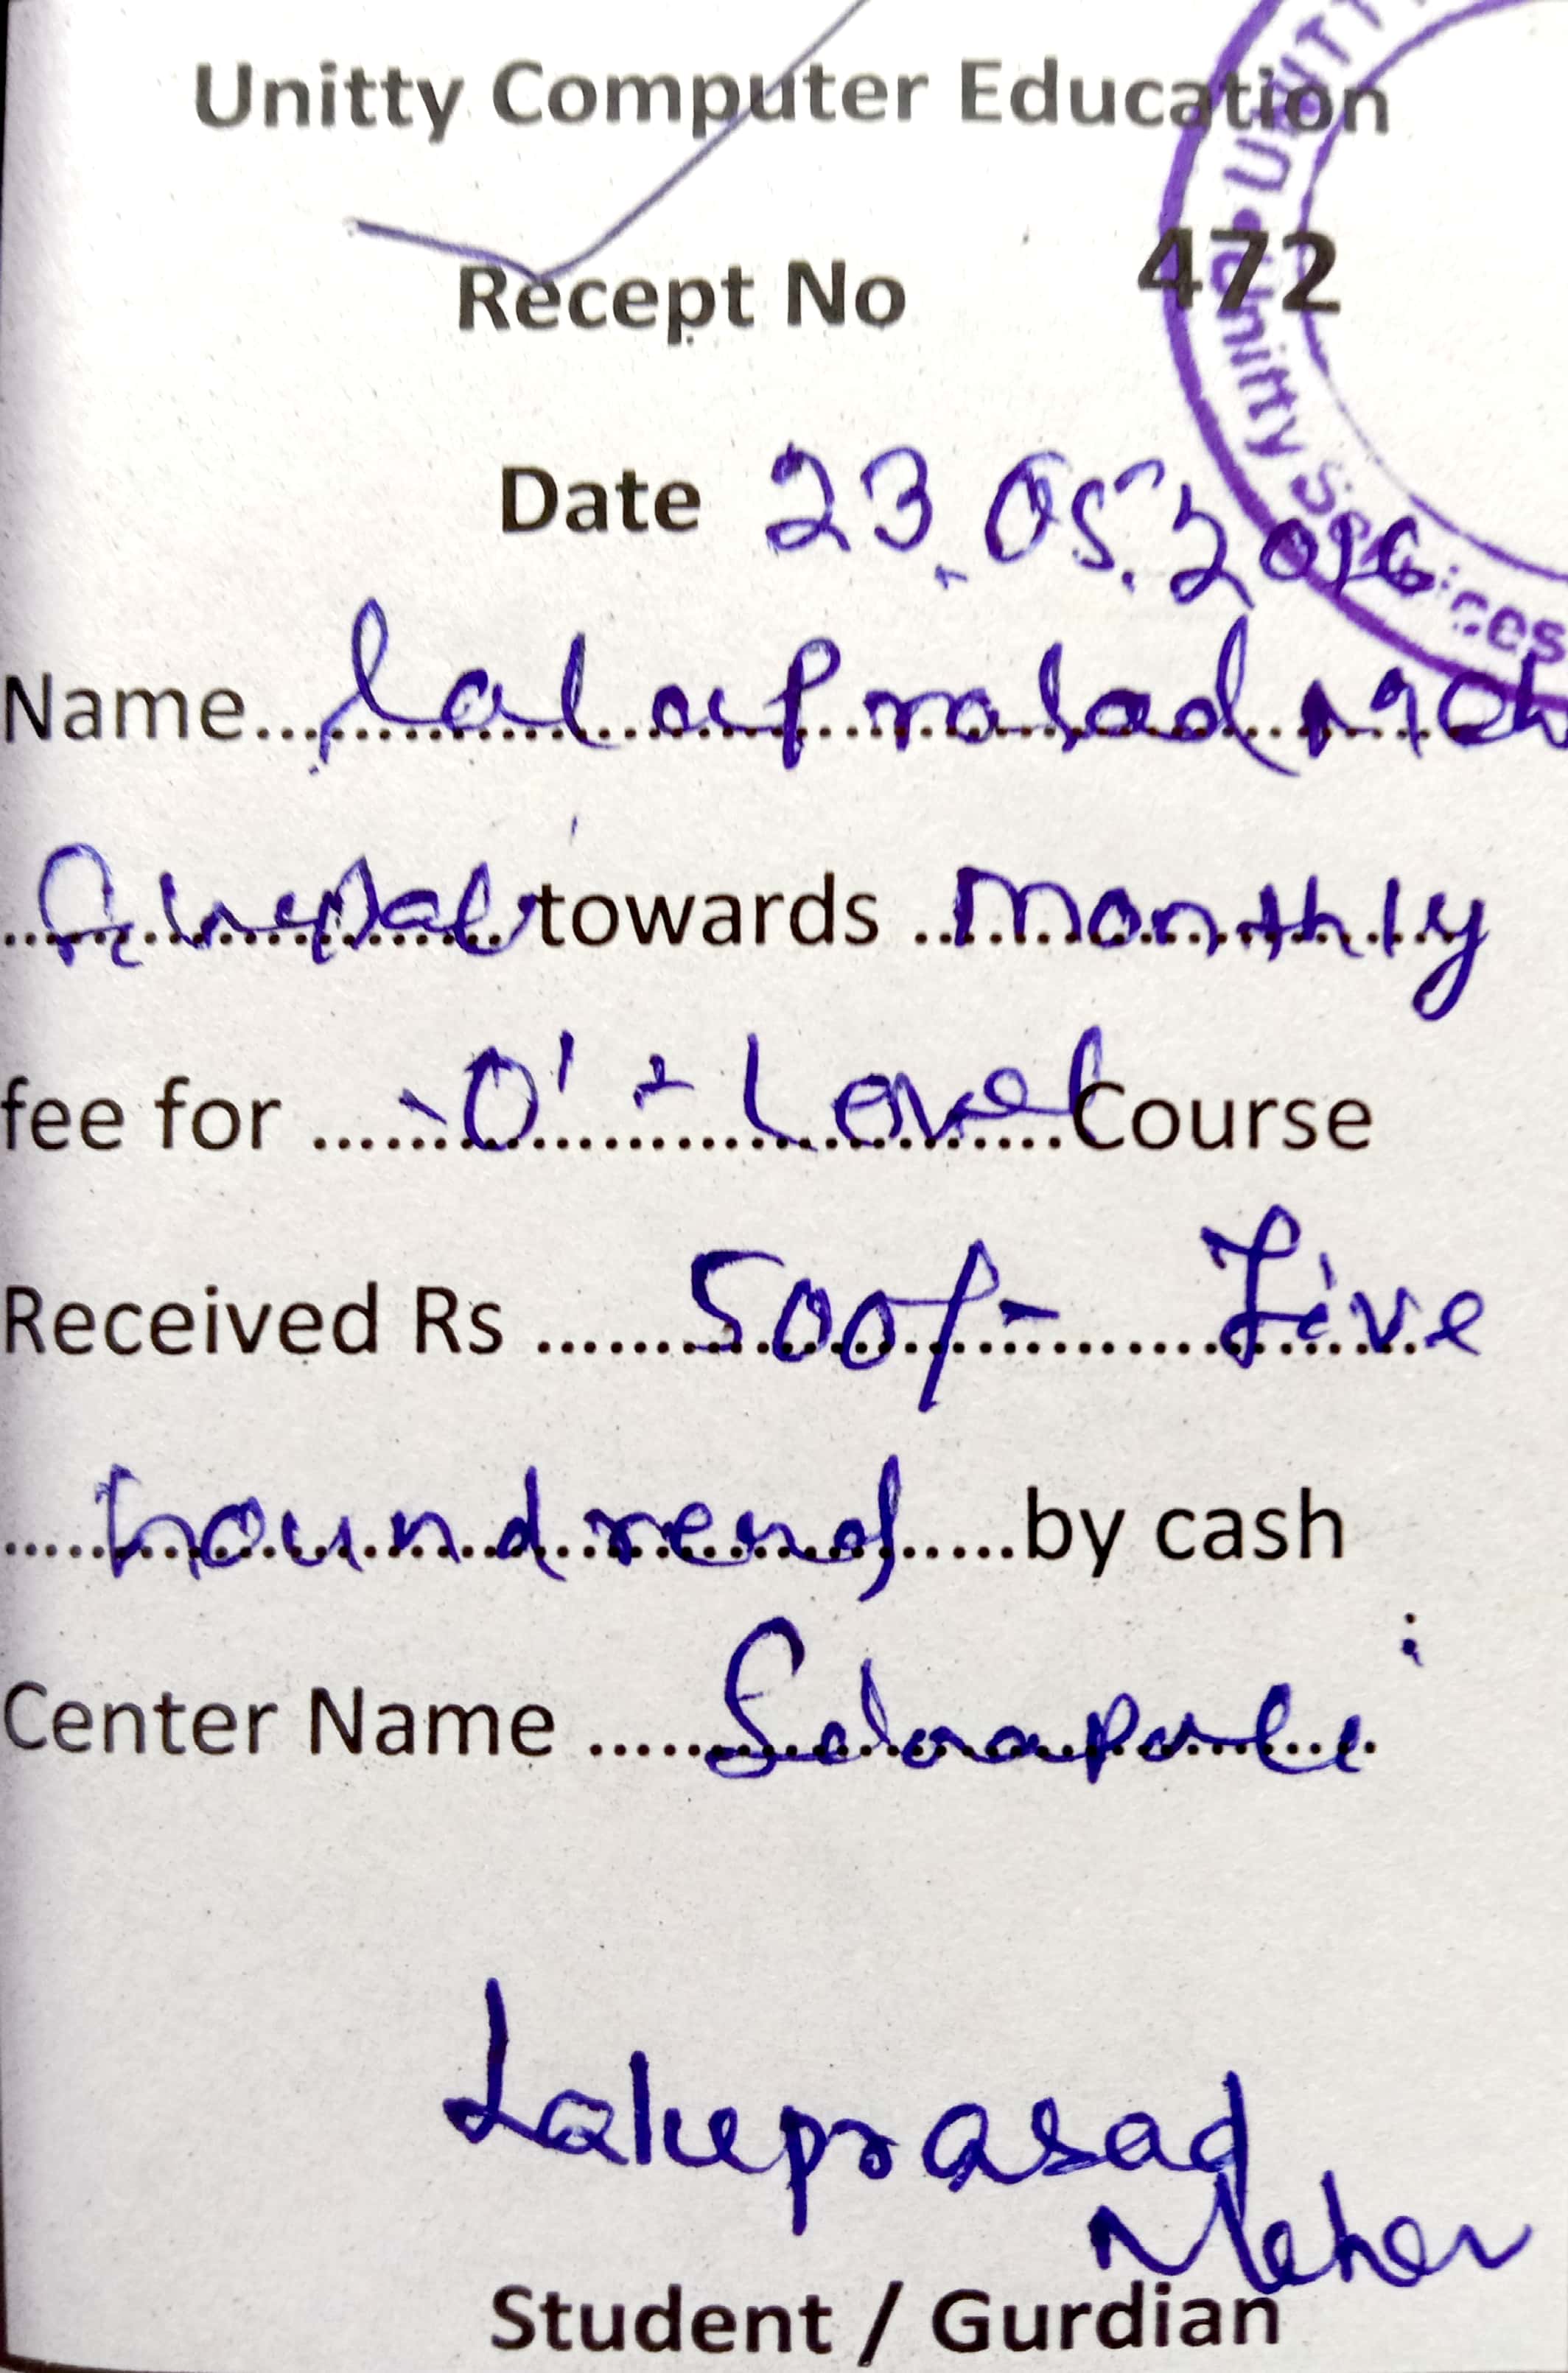 Unitty Computer Education
Recept No 472
Date 23.05.2016
UNITT
Unitty Services
Name.... laluprasad Meh
towards .. Monthly
fee for ...... 'O' - Level Course
Received Rs ....... 500/- Five
.... houndrend .....by cash
Center Name .....
Laluprasad
Meher
Student / Gurdian